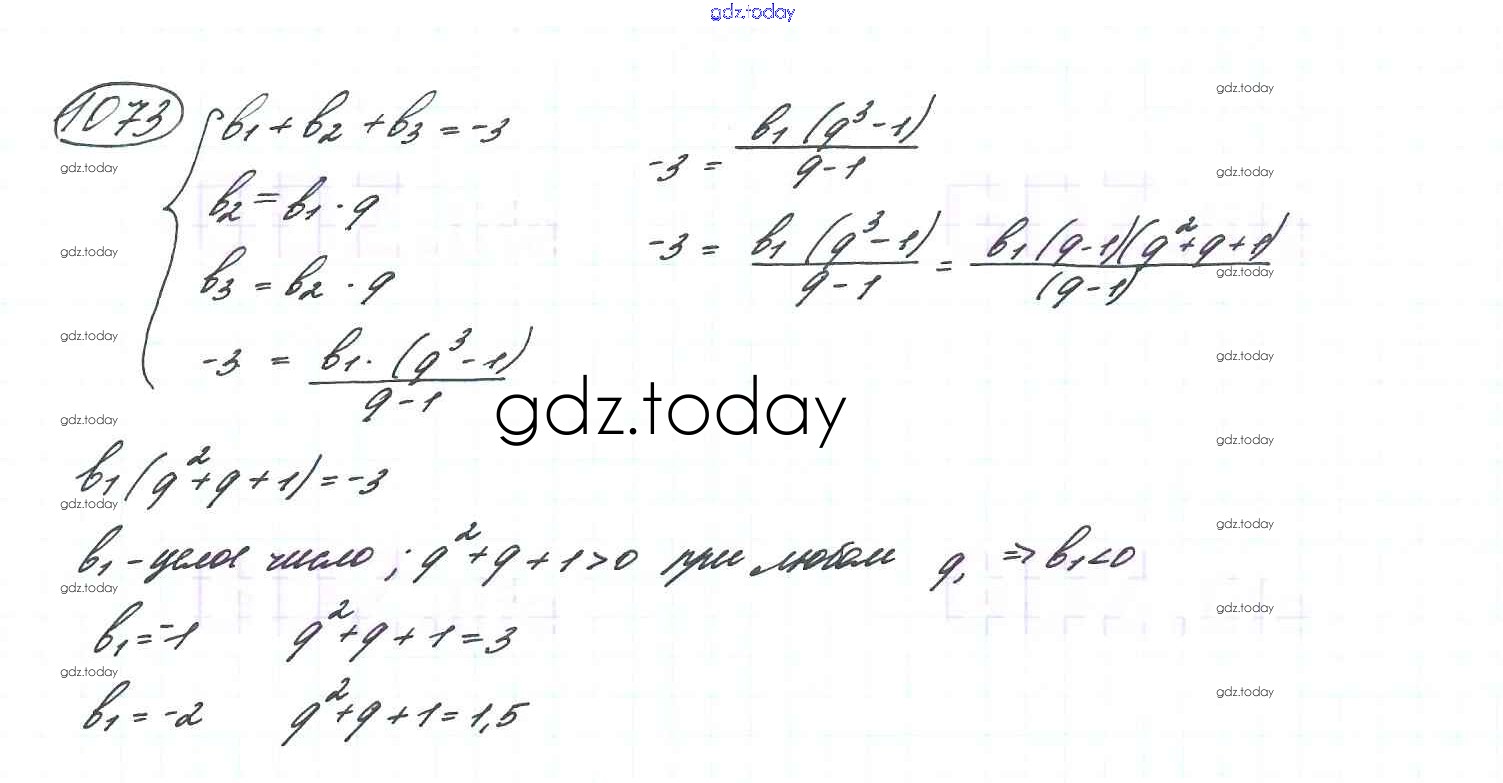 gdz.today
1073
b₁ + b₂ + b₃ = -3
b₂ = b₁ · q
b₃ = b₂ · q
-3 = b₁ · (q³ - 1) / q - 1
-3 = b₁ (q³ - 1) / q - 1
-3 = b₁ (q³ - 1) / q - 1 = b₁ (q - 1)(q² + q + 1) / (q - 1)
gdz.today
b₁ (q² + q + 1) = -3
b₁ - целое число ; q² + q + 1 > 0 при любом q, => b₁ < 0
b₁ = -1 q² + q + 1 = 3
b₁ = -2 q² + q + 1 = 1,5
gdz.today
gdz.today
gdz.today
gdz.today
gdz.today
gdz.today
gdz.today
gdz.today
gdz.today
gdz.today
gdz.today
gdz.today
gdz.today
gdz.today
gdz.today